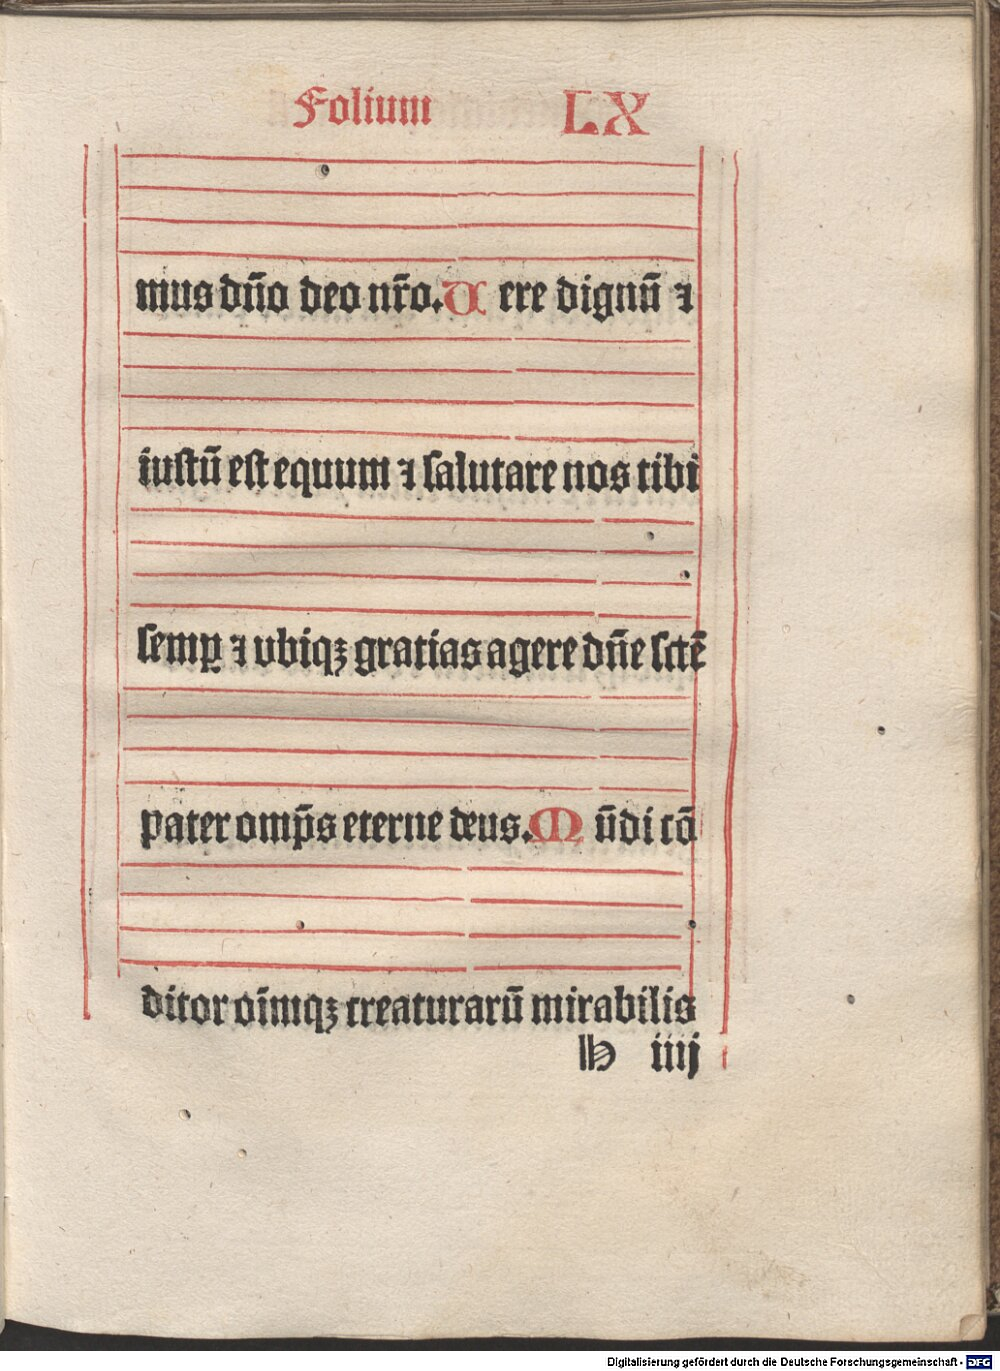 Folium LX
mus dño deo nr̃o. Uere dignũ ⁊
iustũ est equum ⁊ salutare nos tibi
semꝑ ⁊ vbiqꝫ gratias agere dñe sctẽ
pater omp̃s eterne deus. Mũdi cõ
ditor oĩmqꝫ creaturarũ mirabilis
h iiij
Digitalisierung gefördert durch die Deutsche Forschungsgemeinschaft - DFG